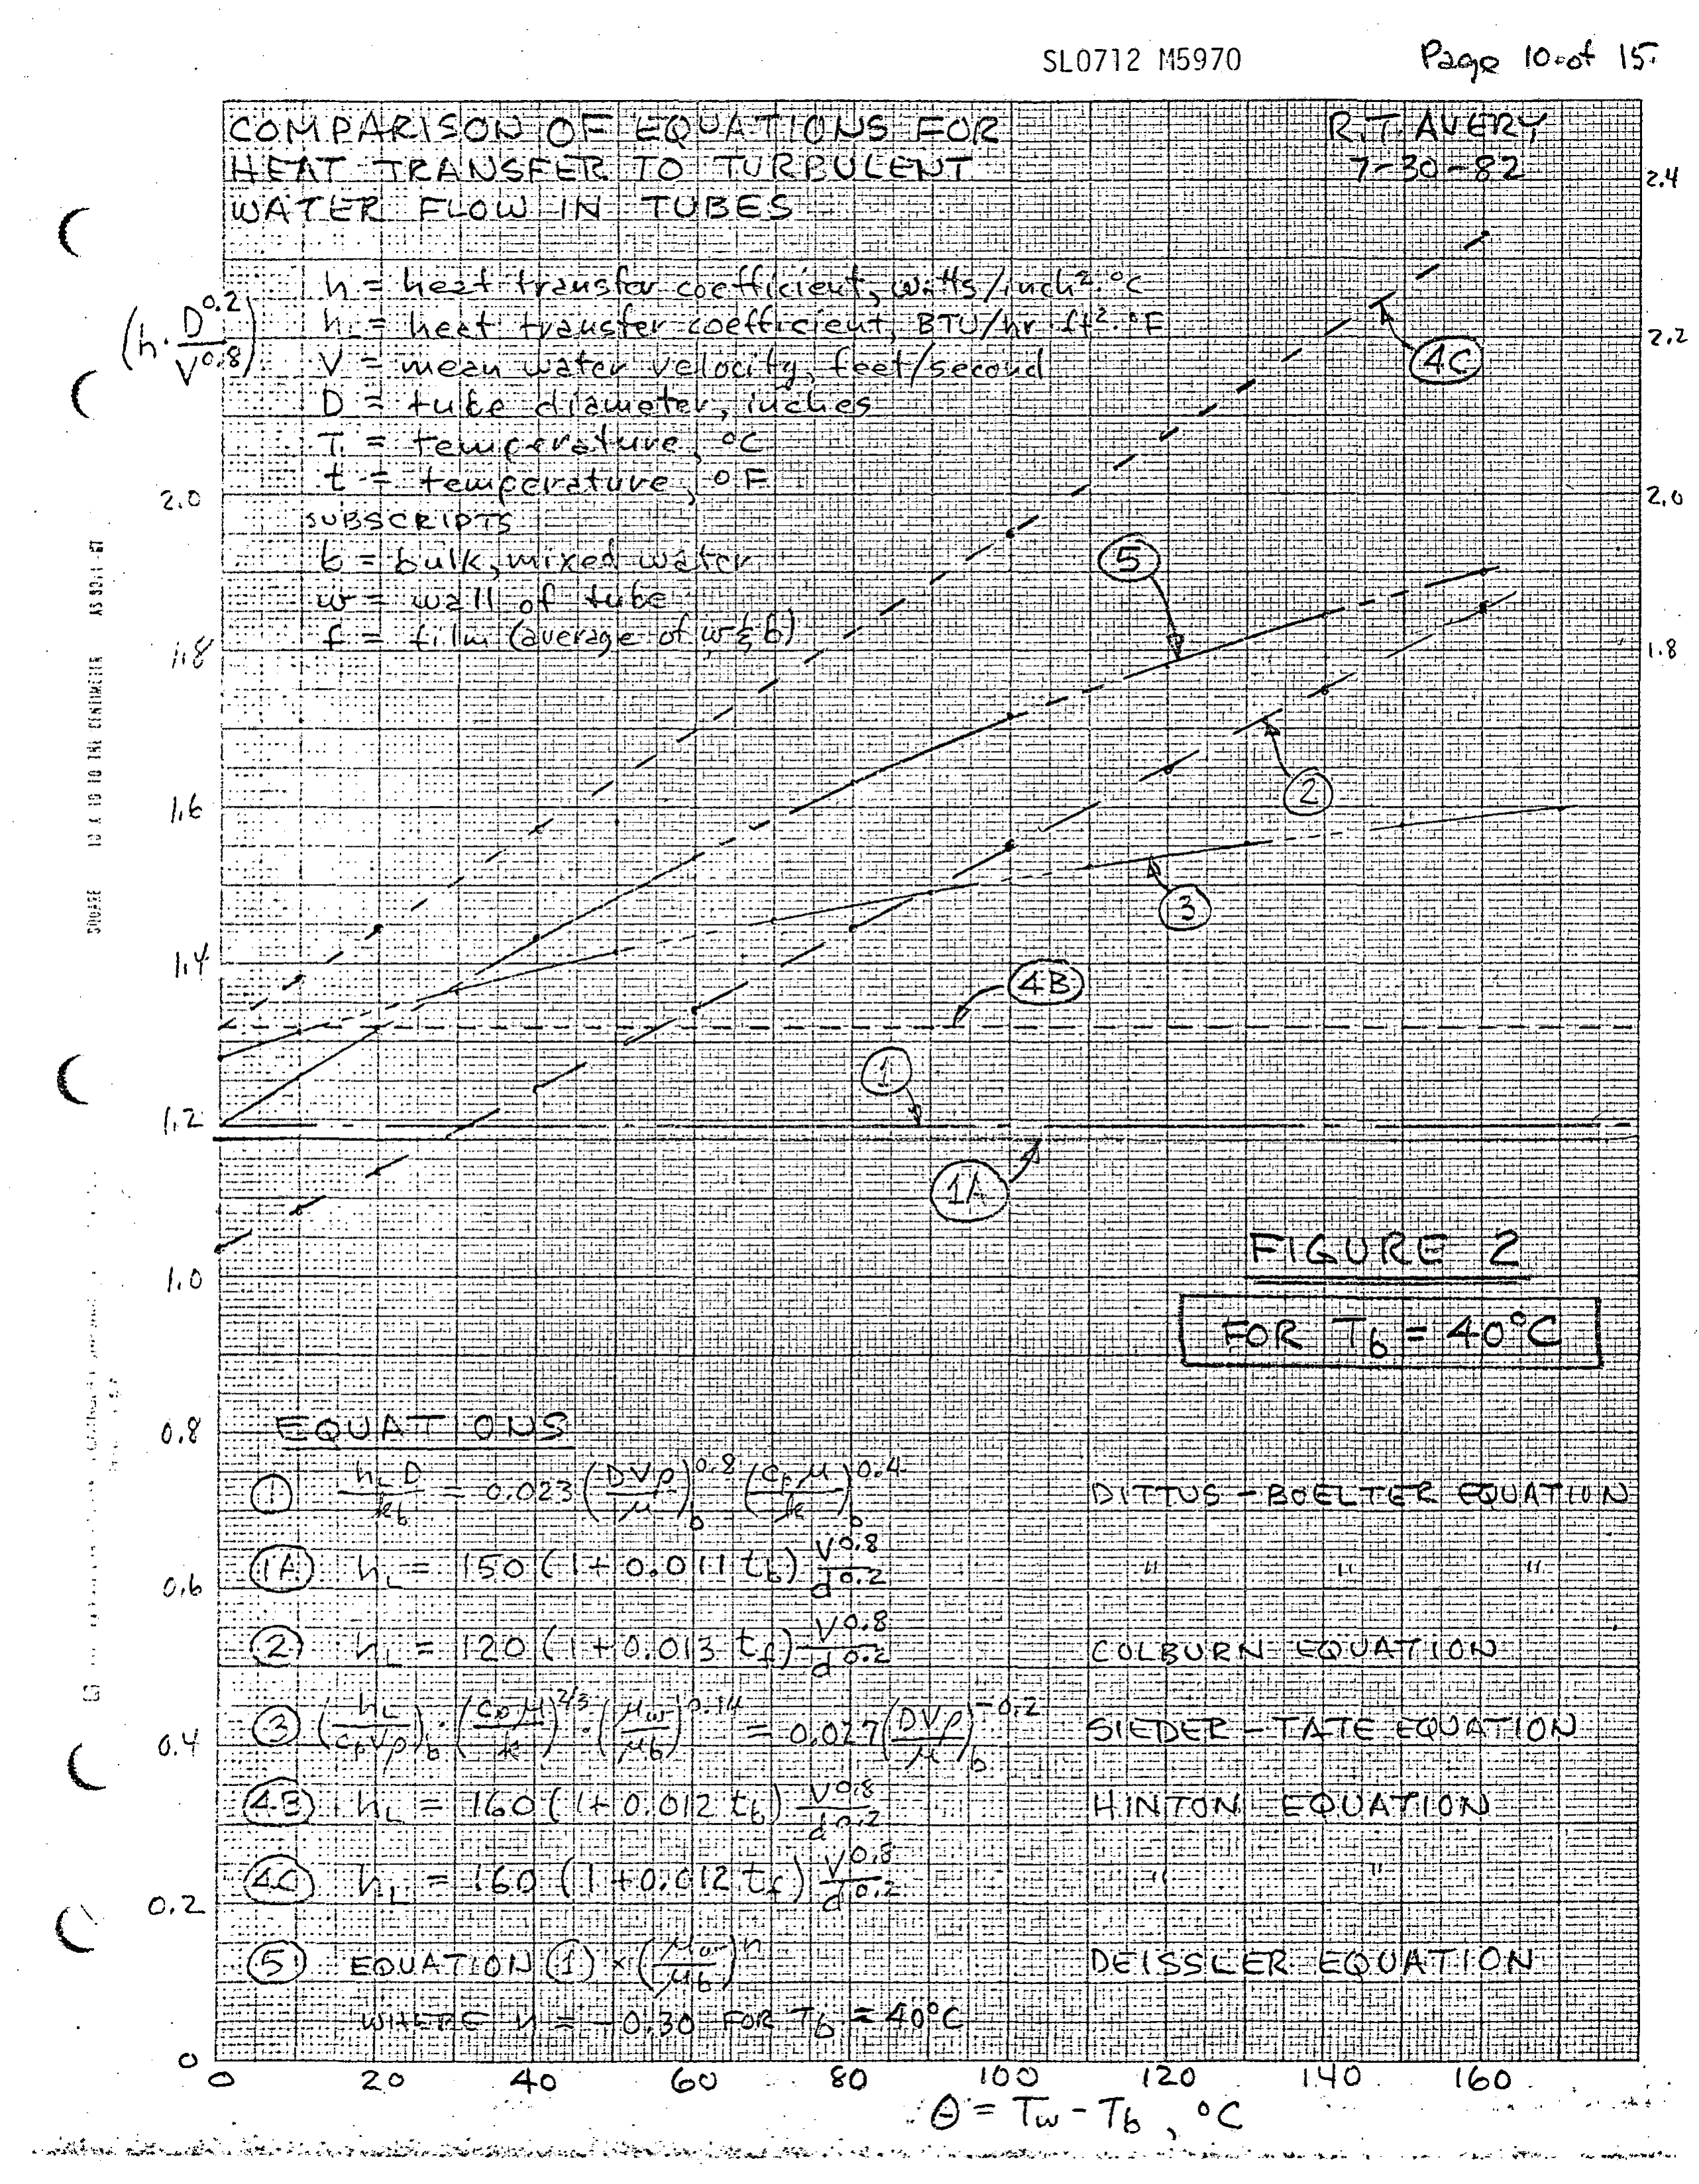 SL0712 M5970
Page 10 of 15
COMPARISON OF EQUATIONS FOR
HEAT TRANSFER TO TURBULENT
WATER FLOW IN TUBES
R.T. AVERY
7-30-82
h = heat transfer coefficient, watts/inch²·°C
h_L = heat transfer coefficient, BTU/hr·ft²·°F
V = mean water velocity, feet/second
D = tube diameter, inches
T = temperature, °C
t = temperature, °F
SUBSCRIPTS
b = bulk, mixed water
w = wall of tube
f = film (average of w & b)
(h · D^0.2 / V^0.8)
2.4
2.2
2.0
1.8
2.0
1.8
1.6
1.4
1.2
1.0
0.8
0.6
0.4
0.2
0
4C
5
2
3
4B
1
1A
FIGURE 2
FOR T_b = 40°C
EQUATIONS
① h_L D / k_b = 0.023 (DVρ/μ)_b^0.8 (c_p μ/k)_b^0.4 DITTUS-BOELTER EQUATION
1A h_L = 150 (1 + 0.011 t_b) V^0.8 / d^0.2 " " "
② h_L = 120 (1 + 0.013 t_f) V^0.8 / d^0.2 COLBURN EQUATION
③ (h_L / c_p Vρ)_b · (c_p μ/k)^2/3 · (μ_w/μ_b)^0.14 = 0.027 (DVρ/μ)_b^-0.2 SIEDER-TATE EQUATION
4B h_L = 160 (1 + 0.012 t_b) V^0.8 / d^0.2 HINTON EQUATION
4C h_L = 160 (1 + 0.012 t_f) V^0.8 / d^0.2 " "
⑤ EQUATION ① × (μ_w/μ_b)^n DEISSLER EQUATION
WHERE n = -0.30 FOR T_b = 40°C
0 20 40 60 80 100 120 140 160
θ = T_w - T_b, °C
SQUARE 10 X 10 TO THE CENTIMETER